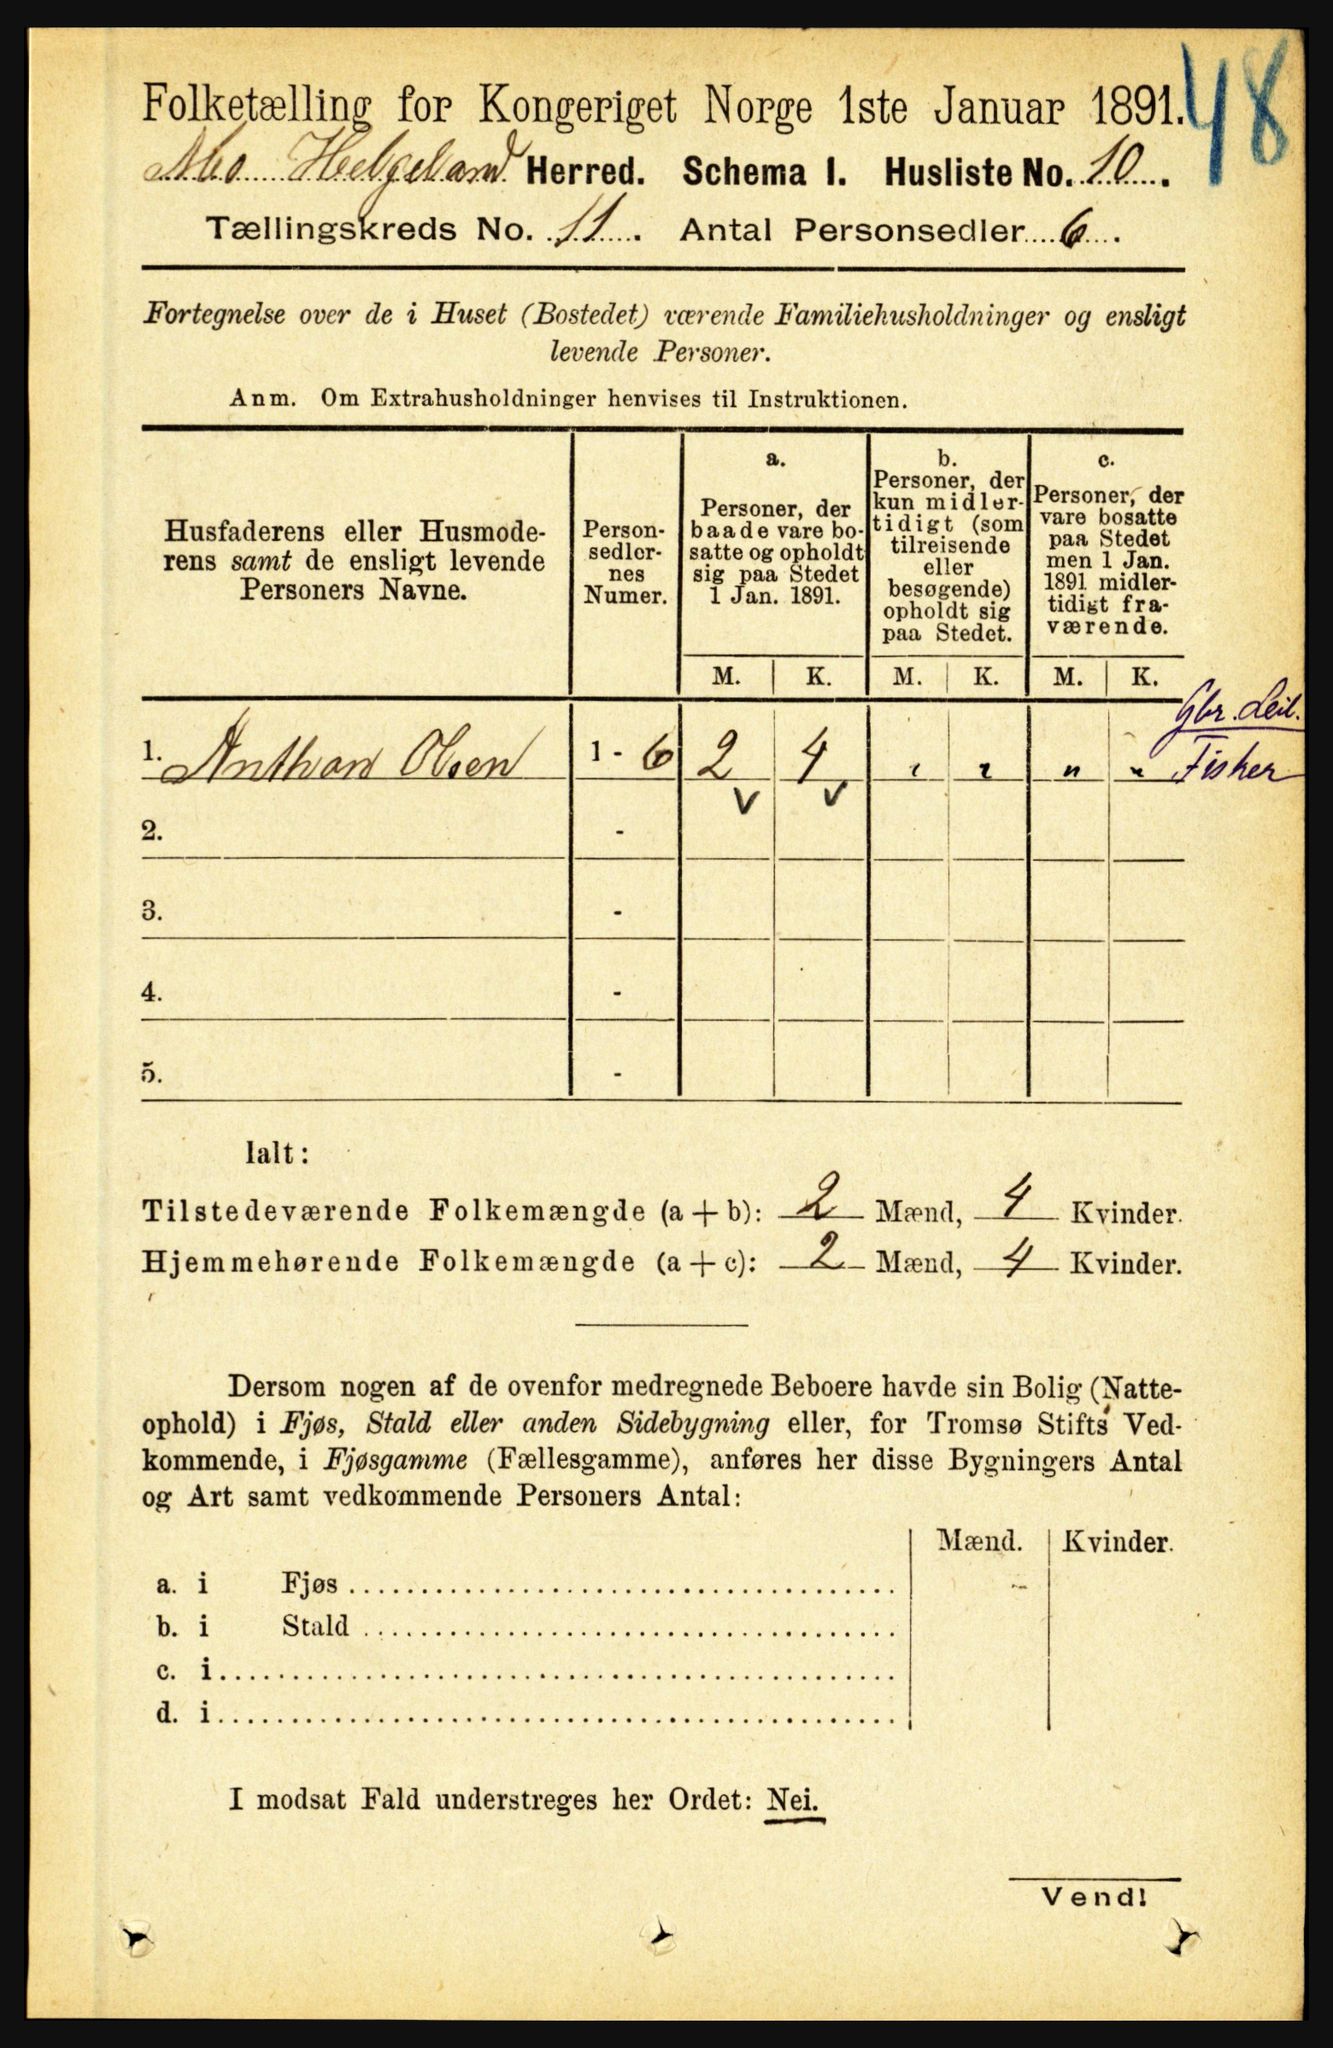 48
Folketælling for Kongeriget Norge 1ste Januar 1891.
Mo Helgeland Herred. Schema I. Husliste No. 10.
Tællingskreds No. 11. Antal Personsedler 6.
Fortegnelse over de i Huset (Bostedet) værende Familiehusholdninger og ensligt
levende Personer.
Anm. Om Extrahusholdninger henvises til Instruktionen.
Husfaderens eller Husmode-
rens samt de ensligt levende
Personers Navne.
Person-
sedler-
nes
Numer.
a.
Personer, der
baade vare bo-
satte og opholdt
sig paa Stedet
1 Jan. 1891.
b.
Personer, der
kun midler-
tidigt (som
tilreisende
eller
besøgende)
opholdt sig
paa Stedet.
c.
Personer, der
vare bosatte
paa Stedet
men 1 Jan.
1891 midler-
tidigt fra-
værende.
M. K. M. K. M. K.
Gbr. Leil.
1. Anthon Olsen 1 - 6 2 4 " " " " Fisker
v v
2. -
3. -
4. -
5. -
Ialt:
Tilstedeværende Folkemængde (a + b): 2 Mænd, 4 Kvinder.
Hjemmehørende Folkemængde (a + c): 2 Mænd, 4 Kvinder.
Dersom nogen af de ovenfor medregnede Beboere havde sin Bolig (Natte-
ophold) i Fjøs, Stald eller anden Sidebygning eller, for Tromsø Stifts Ved-
kommende, i Fjøsgamme (Fællesgamme), anføres her disse Bygningers Antal
og Art samt vedkommende Personers Antal:
Mænd. Kvinder.
a. i Fjøs
b. i Stald
c. i
d. i
I modsat Fald understreges her Ordet: Nei.
Vend!